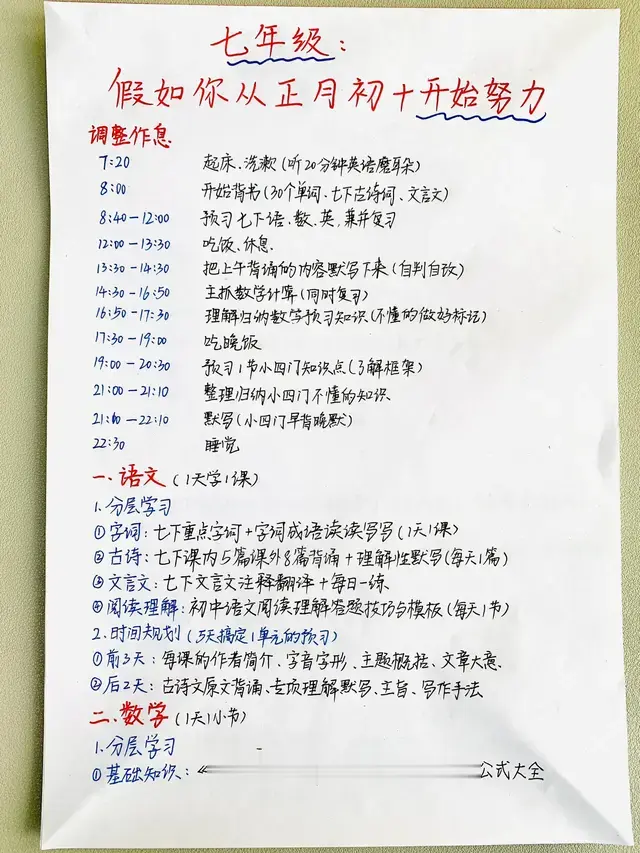 七年级：
假如你从正月初十开始努力
调整作息
7:20 起床、洗漱(听20分钟英语磨耳朵)
8:00 开始背书(30个单词、七下古诗词、文言文)
8:40-12:00 预习七下语、数、英,兼并复习
12:00-13:30 吃饭、休息、
13:30-14:30 把上午背诵的内容默写下来(自判自改)
14:30-16:50 主抓数学计算(同时复习)
16:50-17:30 理解归纳数学预习知识(不懂的做好标记)
17:30-19:00 吃晚饭
19:00-20:30 预习1节小四门知识点(了解框架)
21:00-21:10 整理归纳小四门不懂的知识、
21:10-22:10 默写(小四门早背晚默)
22:30 睡觉
一、语文(1天学1课)
1.分层学习
①字词:七下重点字词+字词成语读读写写(1天1课)
②古诗:七下课内5篇课外8篇背诵+理解性默写(每天1篇)
③文言文:七下文言文注释翻译+每日一练、
④阅读理解:初中语文阅读理解答题技巧与模板(每天1节)
2.时间规划(5天搞定1单元的预习)
①前3天:每课的作者简介、字音字形、主题概括、文章大意、
②后2天:古诗文原文背诵、专项理解默写、主旨、写作手法
二、数学(1天1小节)
1.分层学习
①基础知识:公式大全